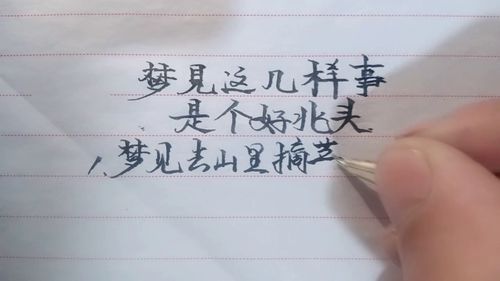 梦見这几样事
是个好兆头
1、梦见去山里摘